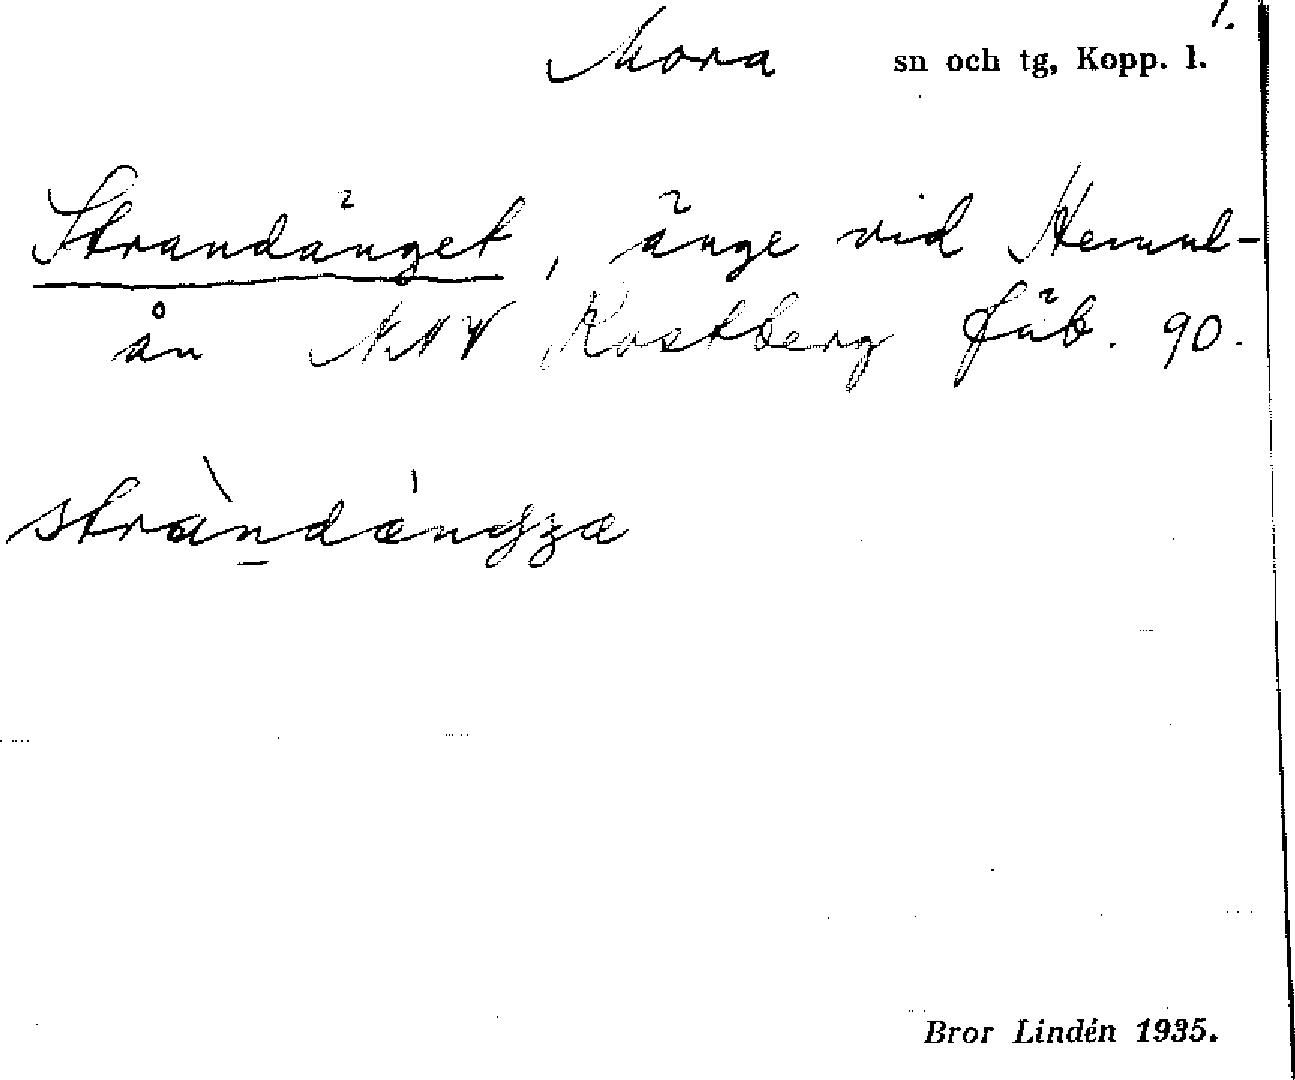 1.
Mora sn och tg, Kopp. l.
Strandänget, änge vid Hemul-
ån NNV Rostberg fäb. 90.
stràndǽngʒæ
Bror Lindén 1935.